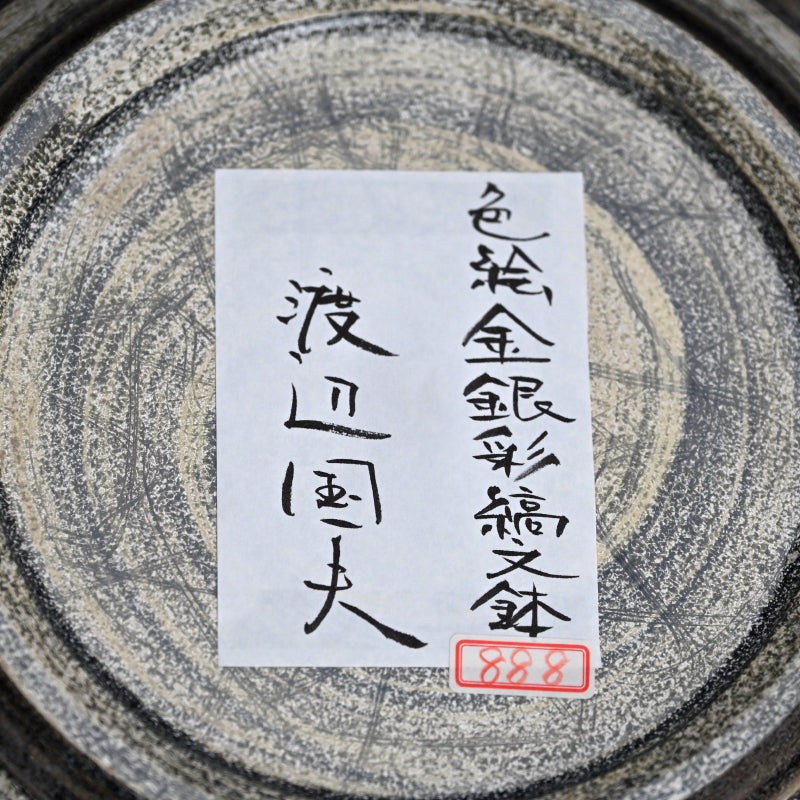 色絵金銀彩縞文鉢
渡辺国夫
888